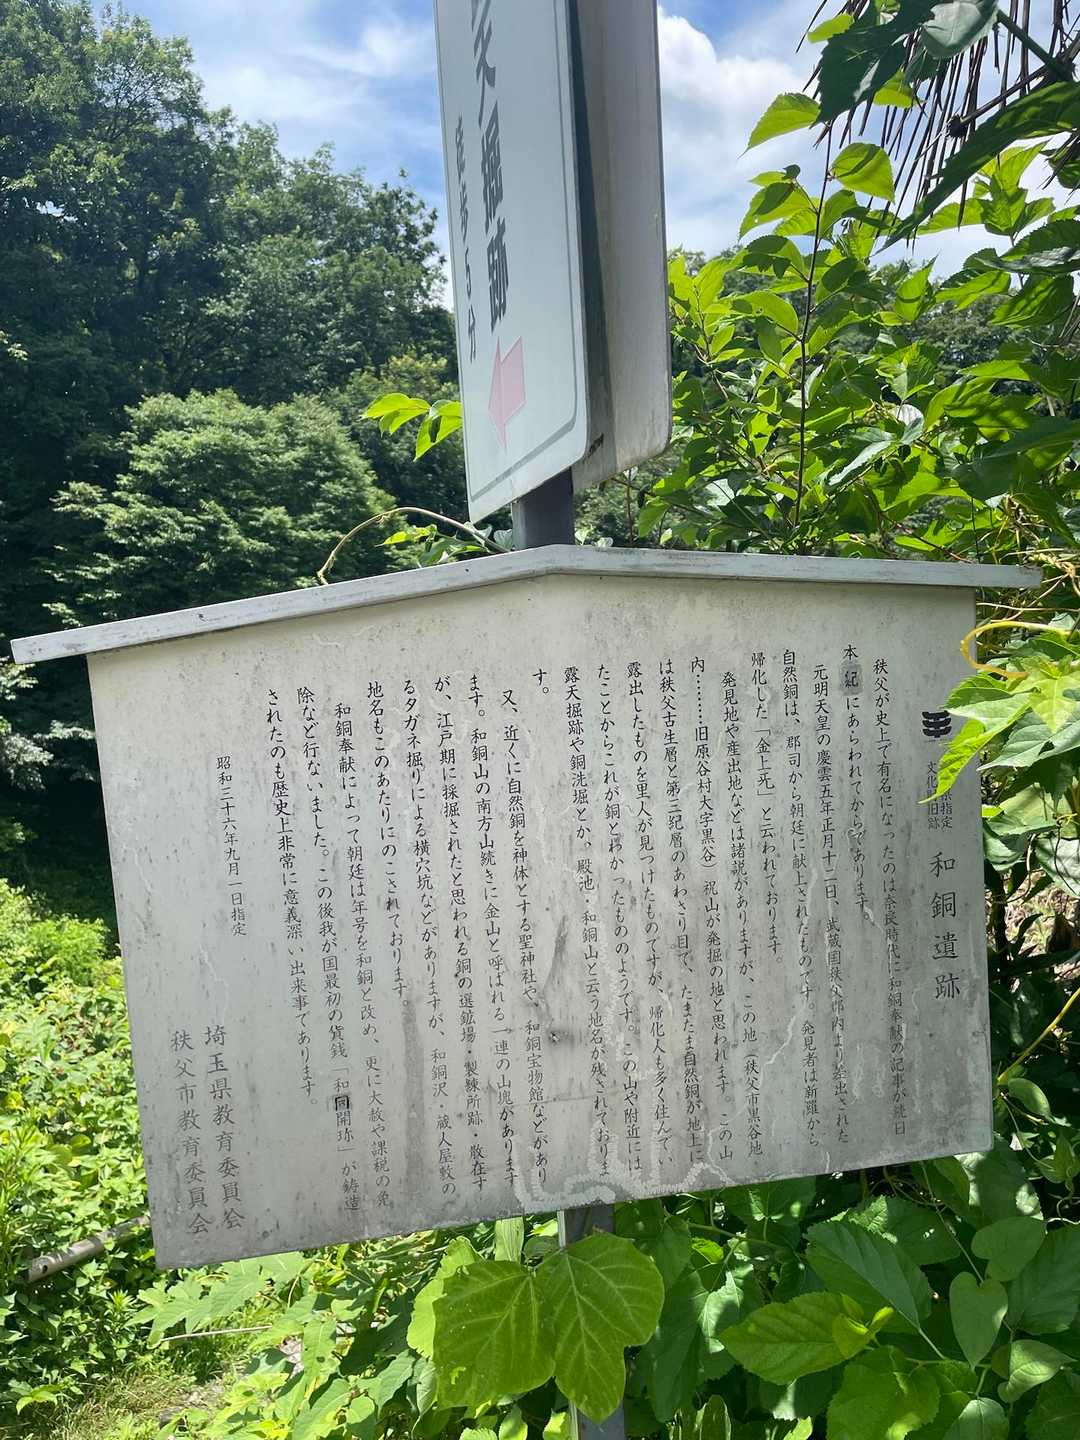 天掘跡
徒歩5分
県指定
文化財旧跡
和銅遺跡
秩父が史上で有名になったのは奈良時代に和銅奉献の記事が続日
本紀にあらわれてからであります。
元明天皇の慶雲五年正月十一日、武蔵国秩父郡内より産出された
自然銅は、郡司から朝廷に献上されたものです。発見者は新羅から
帰化した「金上无」と云われております。
発見地や産出地などは諸説がありますが、この地(秩父市黒谷地
内………旧原谷村大字黒谷)祝山が発掘の地と思われます。この山
は秩父古生層と第三紀層のあわさり目で、たまたま自然銅が地上に
露出したものを里人が見つけたものですが、帰化人も多く住んでい
たことからこれが銅とわかったもののようです。この山や附近には
露天掘跡や銅洗堀とか、殿池・和銅山と云う地名が残されておりま
す。
又、近くに自然銅を神体とする聖神社や、和銅宝物館などがあり
ます。和銅山の南方山続きに金山と呼ばれる一連の山塊があります
が、江戸期に採掘されたと思われる銅の選鉱場・製錬所跡・散在す
るタガネ掘りによる横穴坑などがありますが、和銅沢・蔵人屋敷の
地名もこのあたりにのこされております。
和銅奉献によって朝廷は年号を和銅と改め、更に大赦や課税の免
除など行ないました。この後我が国最初の貨銭「和同開珎」が鋳造
されたのも歴史上非常に意義深い出来事であります。
昭和三十六年九月一日指定
埼玉県教育委員会
秩父市教育委員会